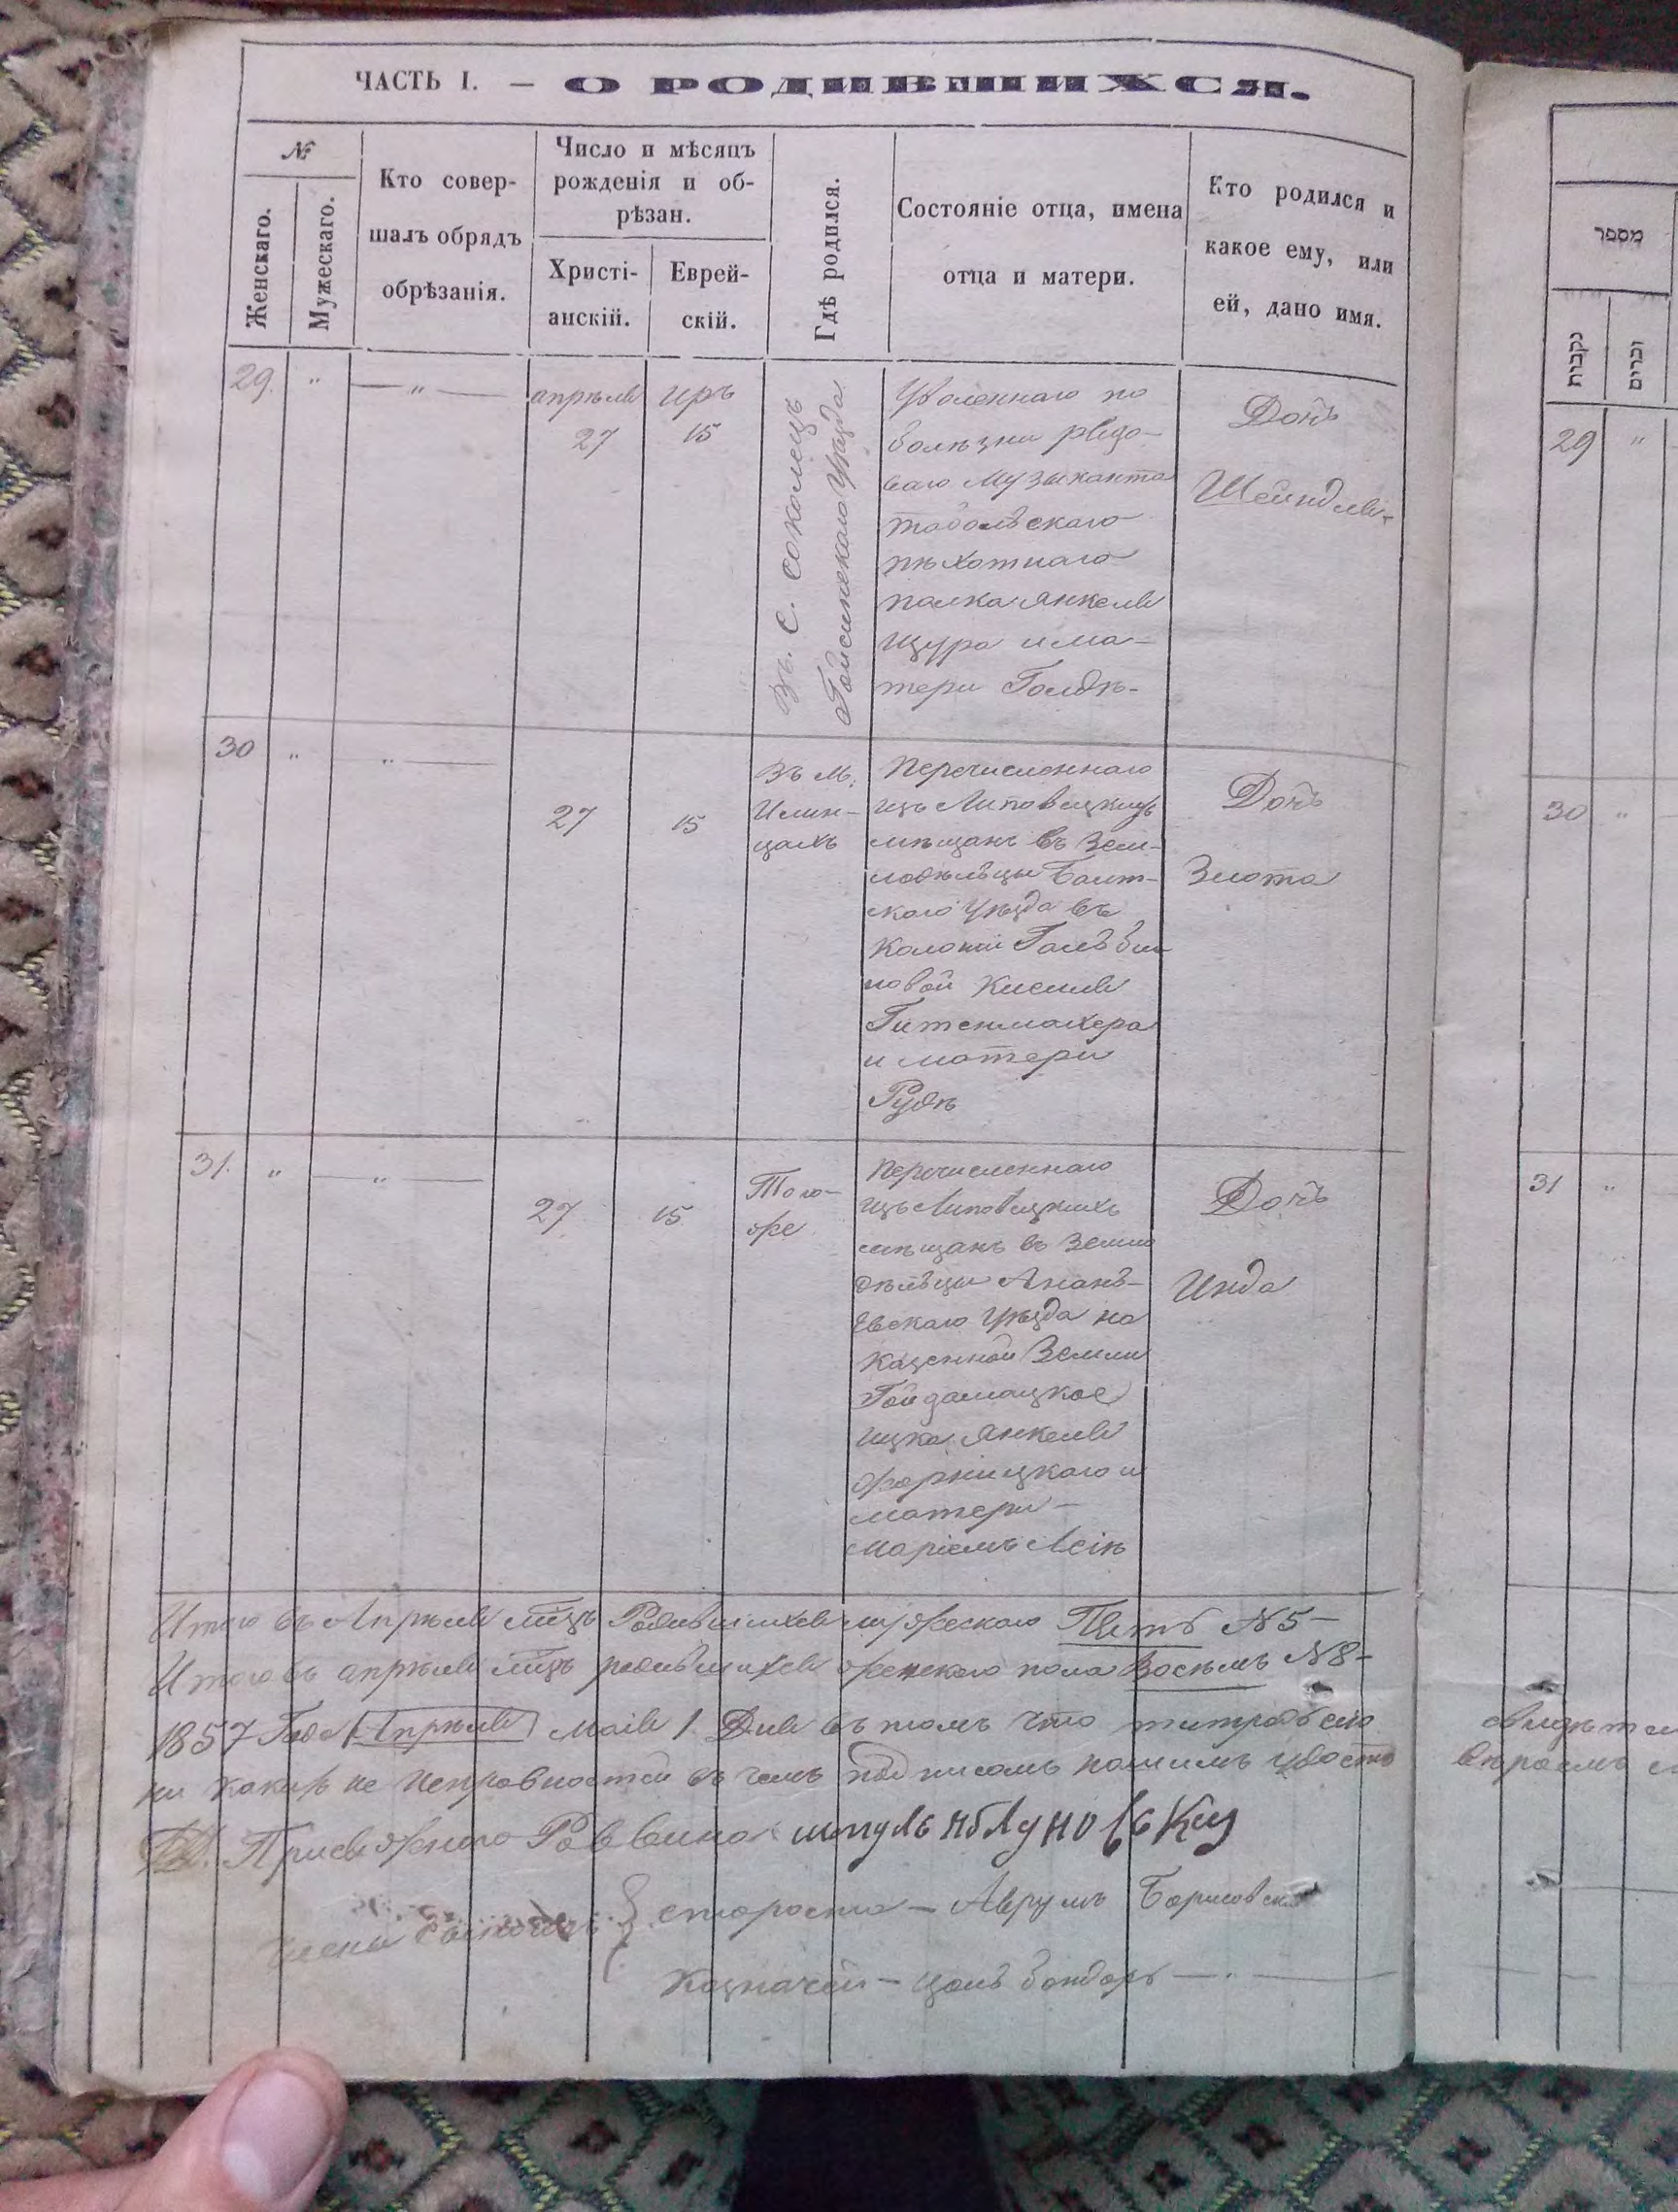 ЧАСТЬ I. — О РОДИВШИХСЯ.
№
Женскаго.
Мужескаго.
Кто совер-
шалъ обрядъ
обрѣзанія.
Число и мѣсяцъ
рожденія и об-
рѣзан.
Христі-
анскій.
Еврей-
скій.
Гдѣ родился.
Состояніе отца, имена
отца и матери.
Кто родился и
какое ему, или
ей, дано имя.
29. " — " —
апрѣля
27
иръ
15
Въ. С. Соколецъ
Гайсинскаго уѣзда
Уволеннаго по
болѣзни рядо-
ваго музыканта
тобольскаго
пѣхотнаго
полка Янкеля
Щура и ма-
тери Голдѣ-
Дочь
Шейндля-
30 " " —
27
15
Въ м.
Илин-
цахъ
Перечисленнаго
изъ Липовецкихъ
мѣщанъ въ Зем-
ледѣльцы Балт-
скаго уѣзда въ
колоніи
новой Кисиля
Гитенмахера
и матери
Рудѣ
Дочь
Злота
31. " — " —
27
15
Того-
же
Перечисленнаго
изъ Липовецкихъ
мѣщанъ въ Земле
дѣльцы Анань-
евскаго уѣзда на
Казенной Земли
Гайдамацкое
Ицка Янкеля
и
матери —
Маріемъ Лсіѣ
Дочь
Инда
Итого въ Апрѣля мцъ Родившихся мужескаго Пять N5-
Итого въ апрѣля мцъ родившихся женскаго пола Восемь N8-
1857 Года Апрѣля маія 1 Дня въ томъ что
ни какихъ не исправностей въ чемъ подписомъ нашимъ удосто
Присяжнаго Раввина шмуль яблуновски
староста — Аврумъ Борисовски
Казначей — Цаль бондарь —
מספר
נקבות
זכרים
29 "
30 "
31 "